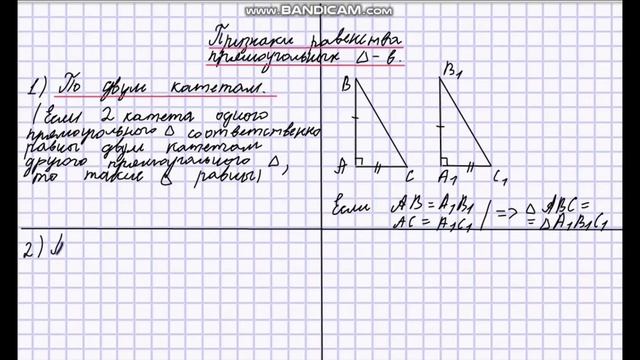 www.BANDICAM.com
Признаки равенства
прямоугольных Δ-в.
1) По двум катетам.
(Если 2 катета одного
прямоугольного Δ соответственно
равны двум катетам
другого прямоугольного Δ,
то такие Δ равны)
B
A
C
B1
A1
C1
Если AB = A1B1
AC = A1C1 | => Δ ABC =
= Δ A1B1C1
2)